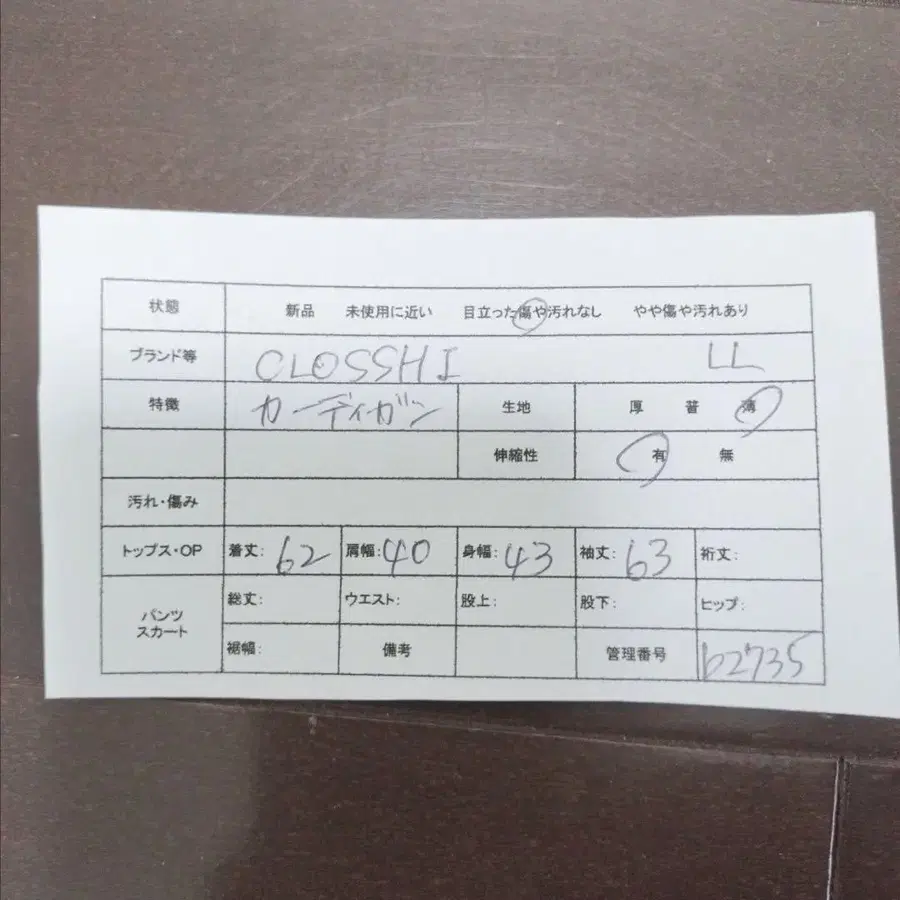 状態 新品 未使用に近い 目立った傷や汚れなし やや傷や汚れあり
ブランド等 CLOSSHI LL
特徴 カーディガン 生地 厚 普 薄
伸縮性 有 無
汚れ・傷み
トップス・OP 着丈: 62 肩幅: 40 身幅: 43 袖丈: 63 裄丈:
パンツ
スカート
総丈: ウエスト: 股上: 股下: ヒップ:
裾幅: 備考 管理番号 b2735